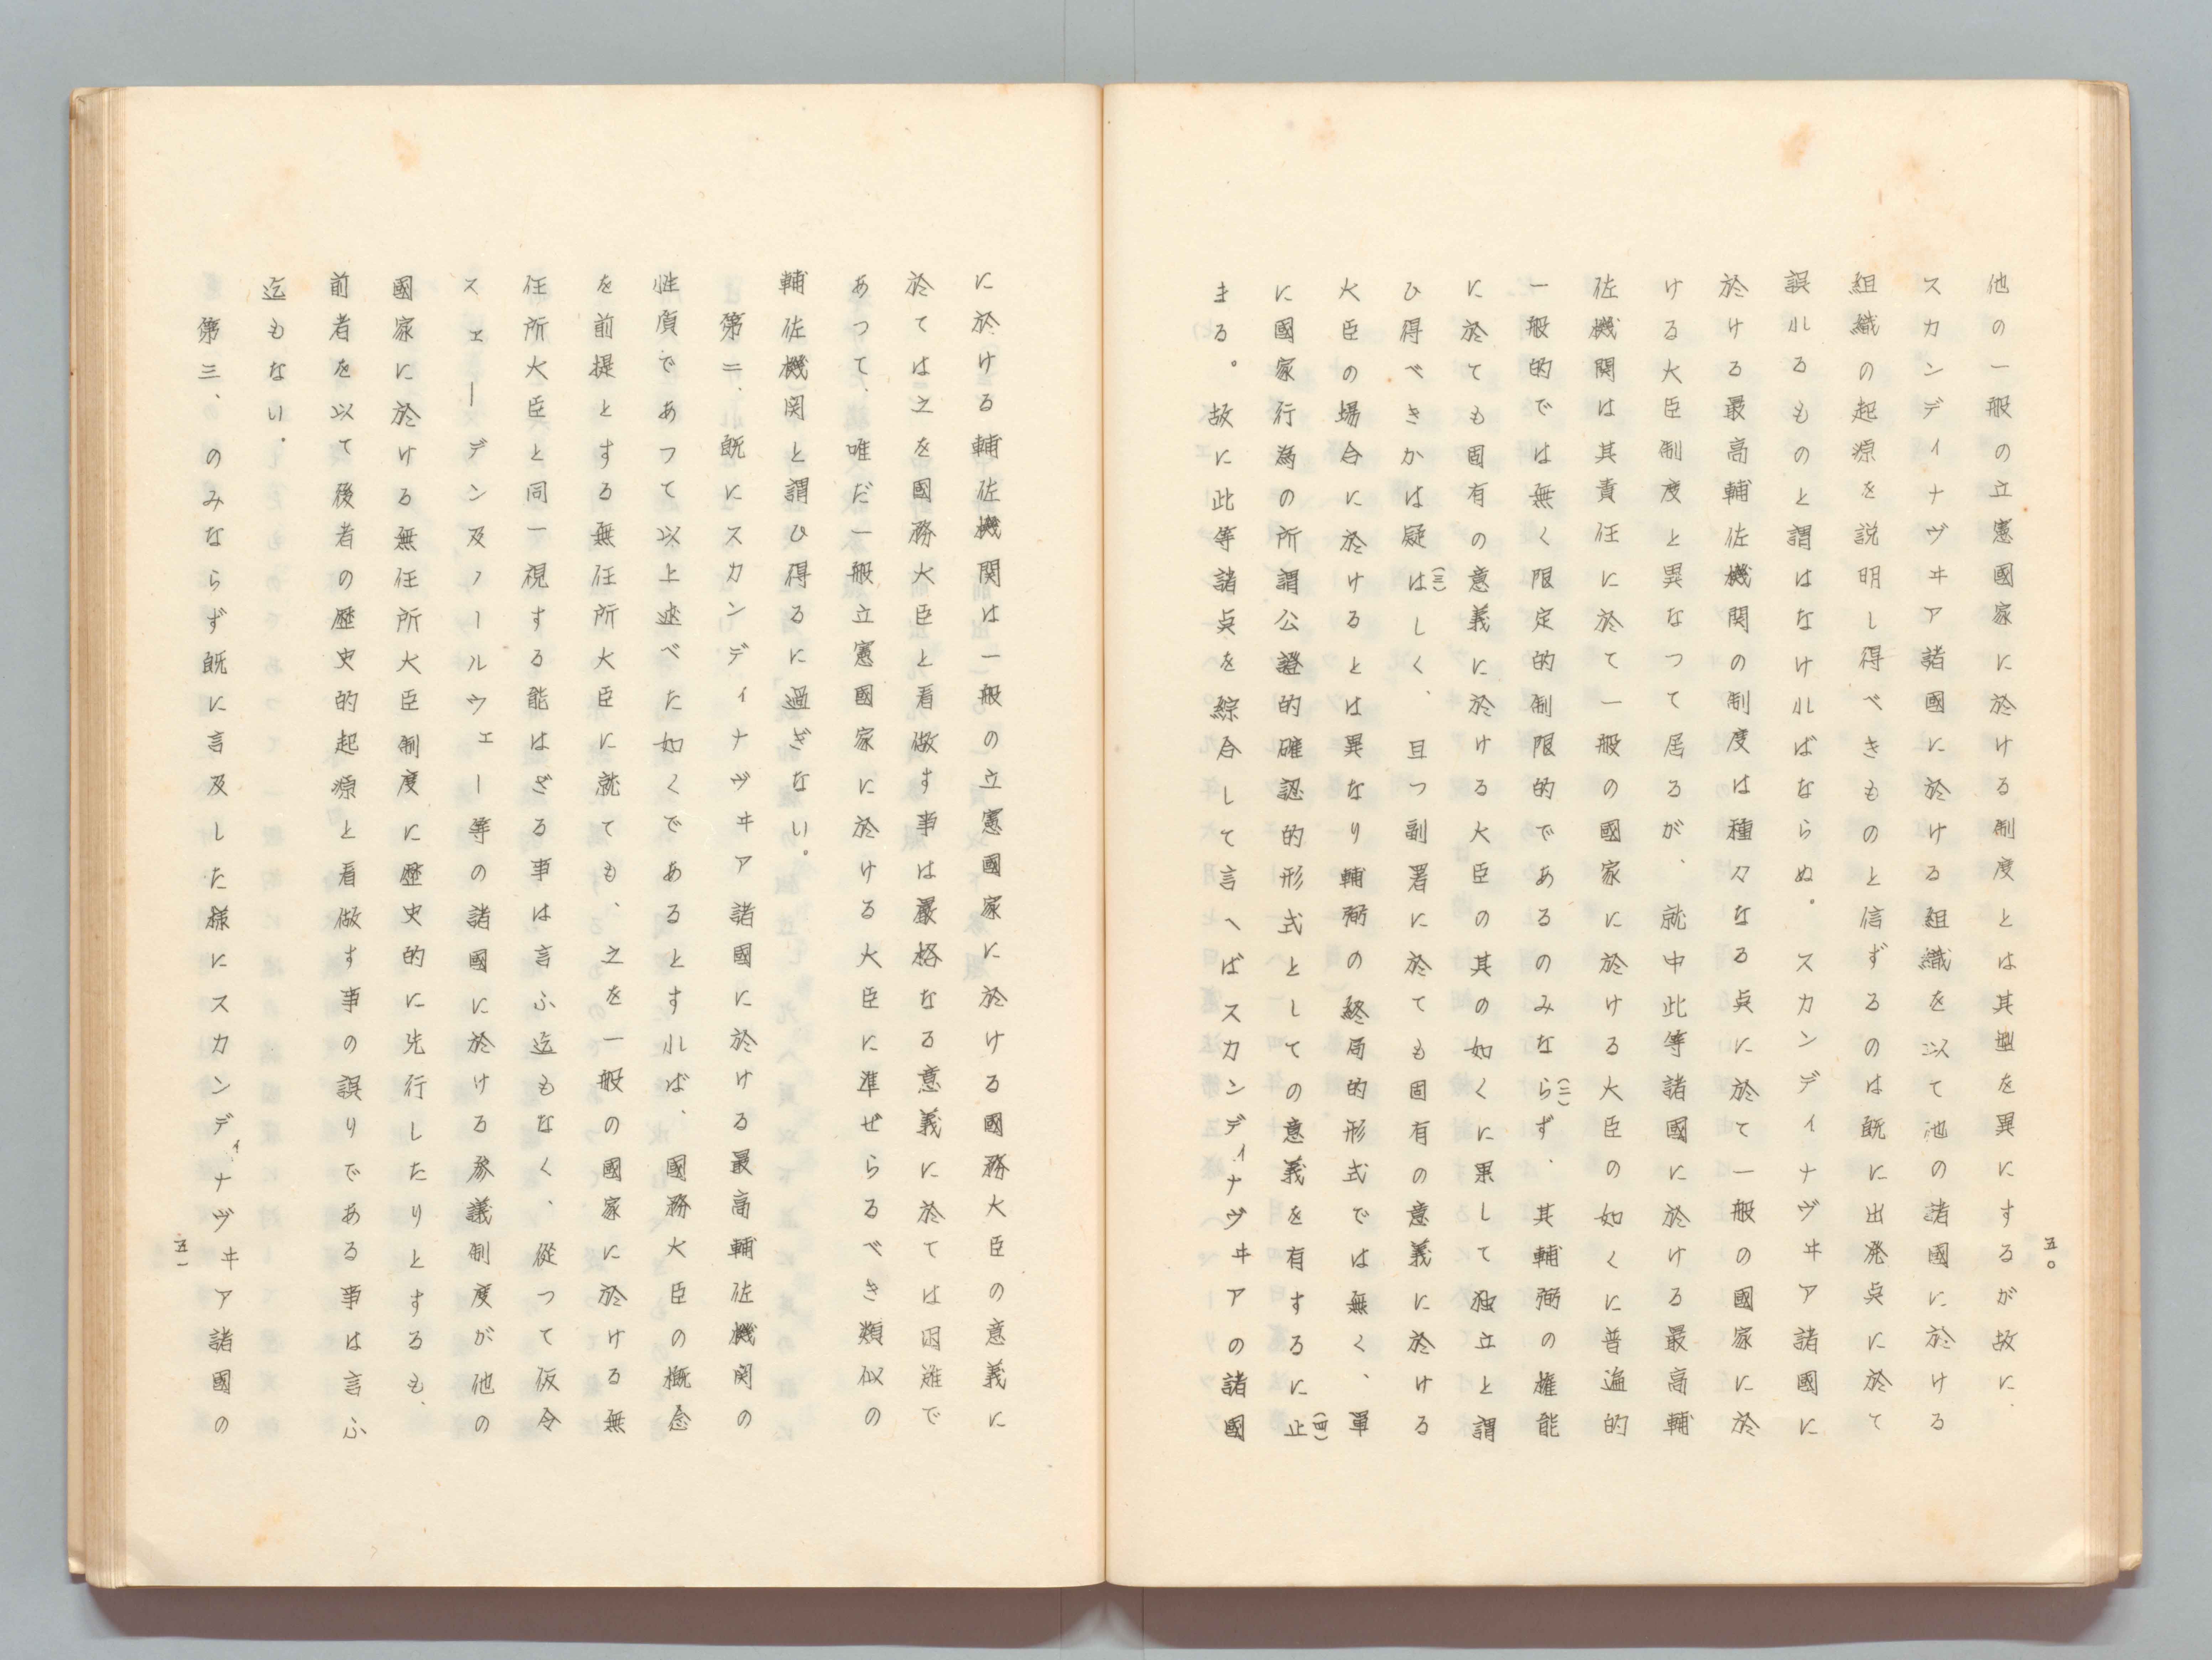 五〇
他の一般の立憲國家に於ける制度とは其型を異にするが故に、
スカンディナヴヰア諸國に於ける組織を以て池の諸國に於ける
組織の起源を説明し得べきものと信ずるのは既に出発奌に於て
誤れるものと謂はなければならぬ。スカンディナヴヰア諸國に
於ける最高輔佐機関の制度は種々なる奌に於て一般の國家に於
ける大臣制度と異なつて居るが、就中此等諸國に於ける最高輔
佐機関は其責任に於て一般の國家に於ける大臣の如くに普遍的
一般的では無く限定的制限的であるのみならず(二)、其輔弼の権能
に於ても固有の意義に於ける大臣の其の如くに果して独立と謂
ひ得べきかは疑はしく(三)、且つ副署に於ても固有の意義に於ける
大臣の場合に於けるとは異なり輔弼の終局的形式では無く、單
に國家行為の所謂公證的確認的形式としての意義を有するに止(四)
まる。故に此等諸奌を綜合して言へばスカンディナヴヰアの諸國
に於ける輔佐機関は一般の立憲國家に於ける國務大臣の意義に
於ては之を國務大臣と看做す事は嚴格なる意義に於ては困難で
あつて、唯だ一般立憲國家に於ける大臣に準ぜらるべき類似の
輔佐機関と謂ひ得るに過ぎない。
第二、既にスカンディナヴヰア諸國に於ける最高輔佐機関の
性質であつて以上述べた如くであるとすれば、國務大臣の概念
を前提とする無任所大臣に就ても、之を一般の國家に於ける無
任所大臣と同一視する能はざる事は言ふ迄もなく、從つて仮令
スエーデン及ノールウェー等の諸國に於ける参議制度が他の
國家に於ける無任所大臣制度に歴史的に先行したりとするも、
前者を以て後者の歴史的起源と看做す事の誤りである事は言ふ
迄もない。
第三、のみならず既に言及した様にスカンディナヴヰア諸國の
五一